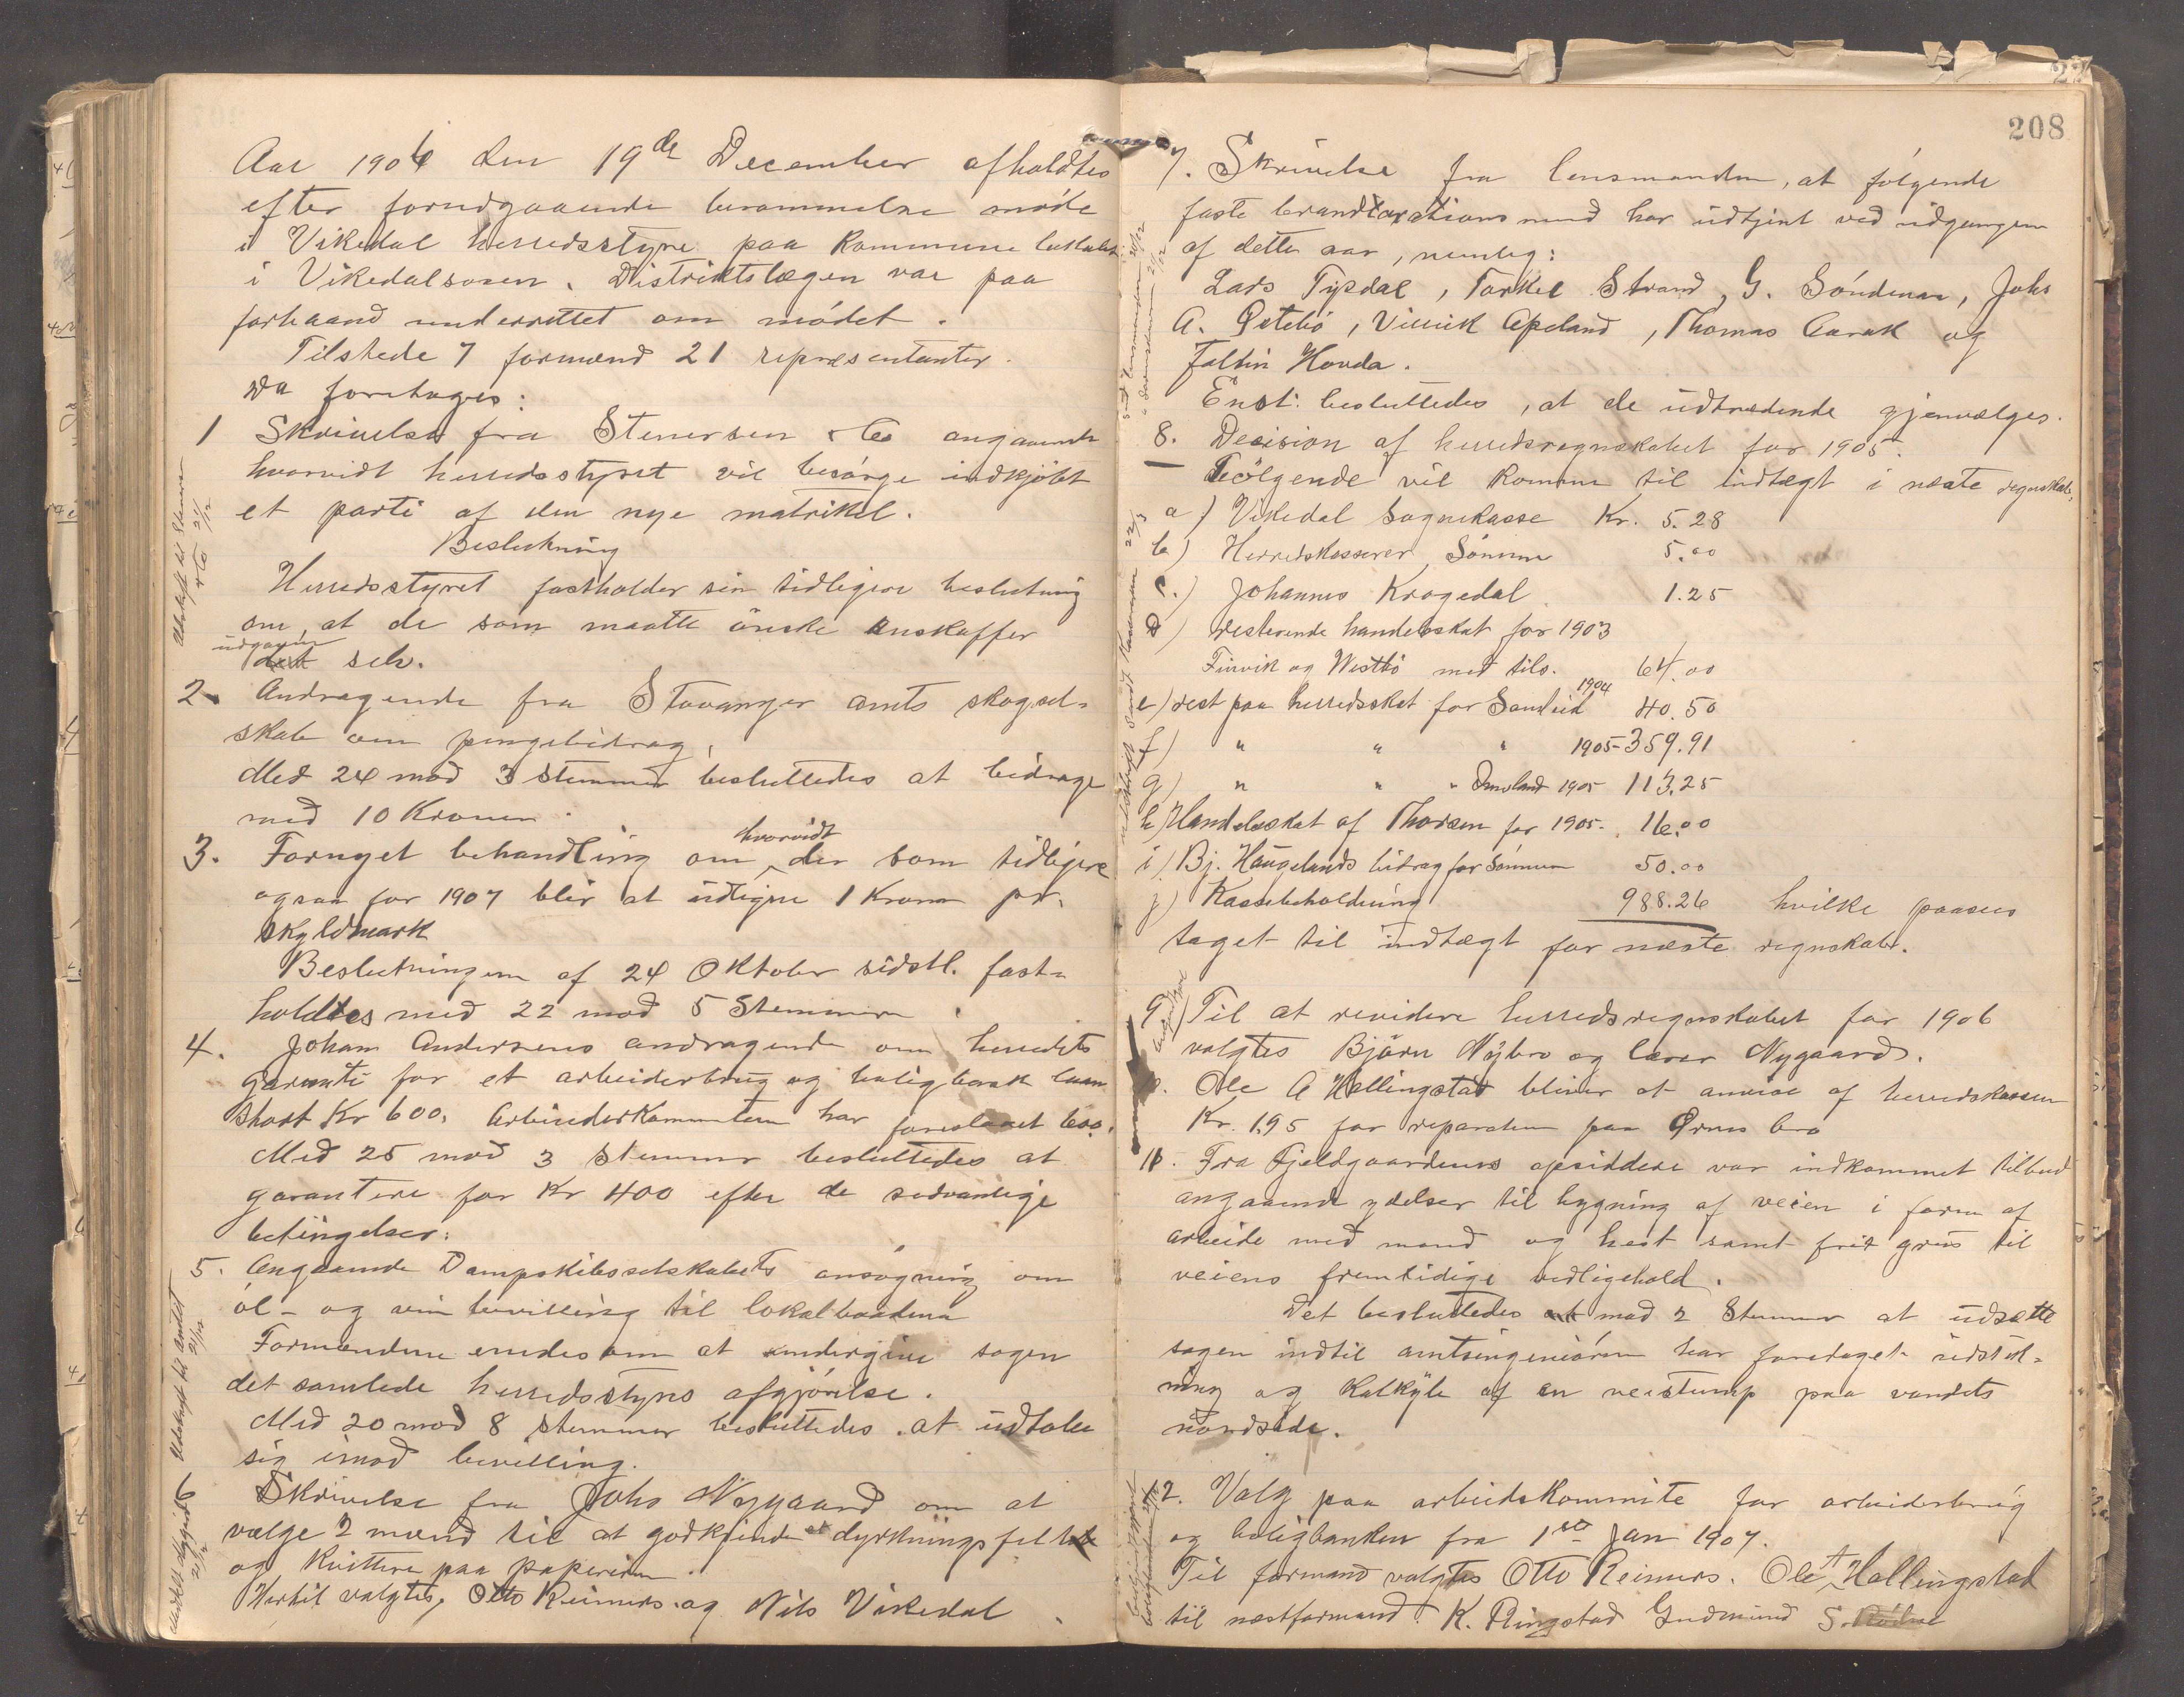 Aar 1906 den 19de December afholdtes
efter foregaaende berammelse møde
i Vikedal herredsstyre paa kommunelokalet
i Vikedalsosen. Distriktslægen var paa
forhaand underrettet om mødet.
Tilstede 7 formænd 21 repræsentanter.
Da foretoges:
1 Skrivelse fra Stenersen & Co angaaende
hvorvidt herredsstyret vil besørge indkjøbt
et parti af den nye matrikel.
Beslutning
Herredsstyret fastholder sin tidligere beslutning
om, at de som maatte ønske anskaffer
udgaven
det selv.
Udskrift til Stenersen & Co 21/12
2 Andragende fra Stavanger amts skogsel-
skab om pengebidrag.
Med 24 mod 3 stemmer besluttedes at bidrage
med 10 Kroner.
3. Fornyet behandling om hvorvidt der som tidligere
ogsaa for 1907 blir at udligne 1 Krone pr.
skyldmark
Beslutningen af 24 Oktober sidstl. fast-
holdtes med 22 mod 5 Stemmer.
4. Johan Andersens andragende om herredets
garanti for et arbeiderbrug og boligbank laan
stort Kr 600. Arbeiderkommiteen har foreslaaet 600.
Med 25 mod 3 stemmer besluttedes at
garantere for Kr 400 efter de sedvanlige
betingelser.
5. Angaaende Dampskibsselskabets ansøgning om
øl- og vin bevilling til lokalbaadene
Formændene enedes om at undergive sagen
det samlede herredsstyres afgjørelse.
Med 20 mod 8 stemmer besluttedes at udtale
sig imod bevilling.
Udskrift til amtet 21/12
6 Skrivelse fra Johs Nygaard om at
vælge 2 mænd til at godkjende dyrkningsfeltet
og kvittere paa papirerne.
Hertil valgtes, Otto Reimers og Nils Vikedal
meddelt Nygaard 21/12
208
7. Skrivelse fra lensmanden, at følgende
faste brandtaxationsmænd har udtjent ved udgangen
af dette aar, nemlig:
Lars Tysdal, Torkel Strand, G. Søndenaa, Johs
A. Østebø, Villik Apeland, Thomas Aarak og
Foltin Hovda.
Enst. besluttedes, at de udtrædende gjenvælges.
8. Decision af herredsregnskabet for 1905.
Følgende vil komme til indtægt i næste regnskab,
a) Vikedal Sognekasse Kr. 5.28
b) Herredskasserer Sømme 5.00
c.) Johannes Krogedal 1.25
d) resterende handelsskat for 1903
Finvik og Westbø med tils. 64.00
e) rest paa herredsskat for Sandeid 1904 40.50
f) " " " 1905 - 359.91
g) " " " Imsland 1905 113.25
h) Handelsskat af Thorsen for 1905 - 16.00
i) Bj. Haugelands bidrag for Sømme 50.00
j) Kassebeholdning 988.26 hvilke paasees
taget til indtægt for næste regnskab.
9) Til at revidere herredsregnskabet for 1906
valgtes Bjørn Nybro og lærer Nygaard.
10. Ole A Hallingstad bliver at anvise af herredskassen
Kr. 1.95 for reparation paa Ørnes bro
11. Fra Fjeldgaardenes opsiddere var indkommet tilbud
angaaende ydelser til bygning af veien i form af
arbeide med mand og hest samt frit grus til
veiens fremtidige vedligehold.
Det besluttedes mod 2 Stemmer at udsætte
sagen indtil amtsingeniøren har foretaget udstik-
ning og kalkyle af en veistump paa vandets
nordside.
12. Valg paa arbeidskommite for arbeiderbrug
og boligbanken fra 1ste Jan 1907.
Til formand valgtes Otto Reimers. Ole A Hallingstad
til næstformand. K. Ringstad Gudmund S.